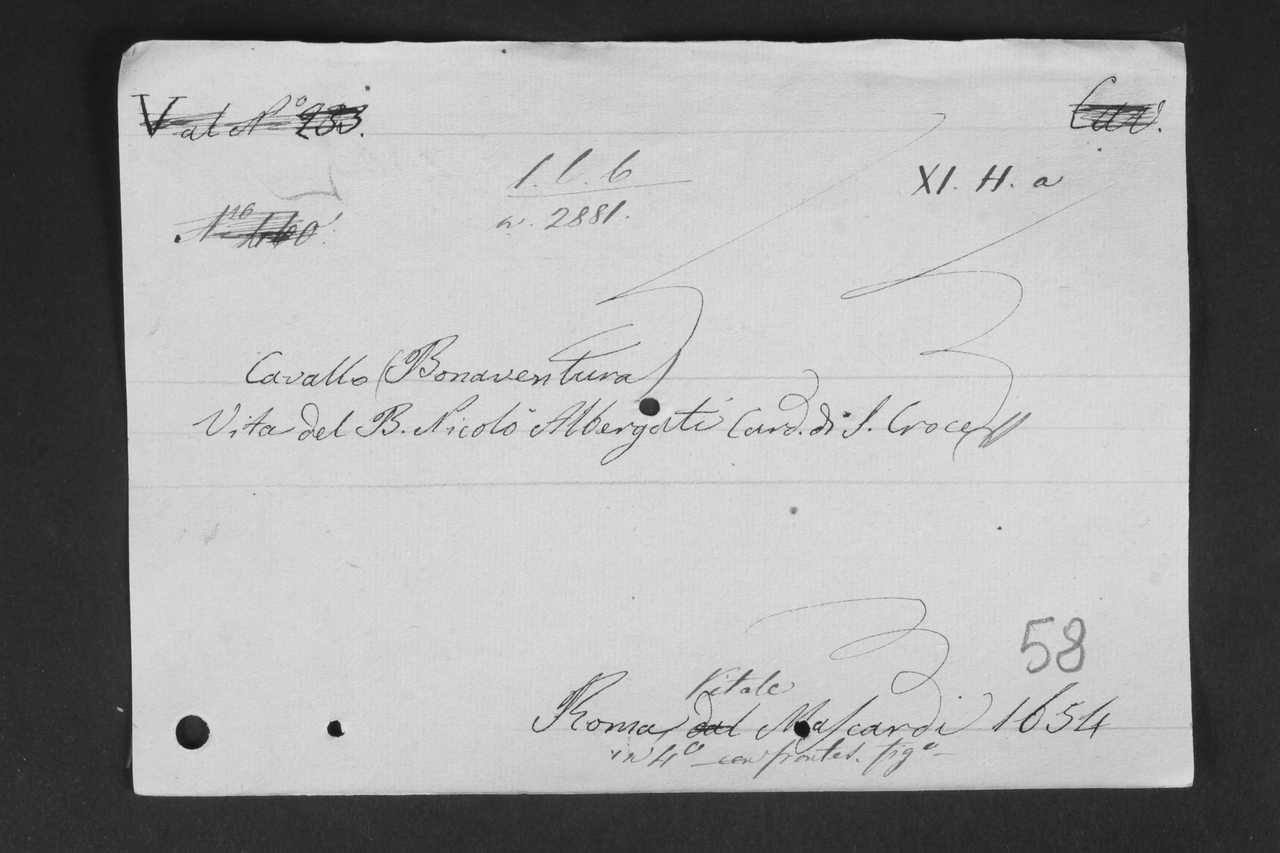 V al N° 233.
I. l. 6
XI. H. a
n. 2881.
Cavallo (Bonaventura)
Vita del B. Nicolò Albergati Card. di S. Croce
58
Vitale
Roma dal Mascardi 1654
in 4° con frontes. fig°